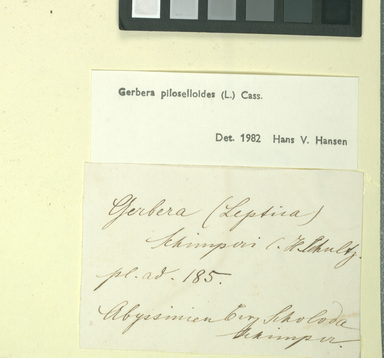 Gerbera piloselloides (L.) Cass.
Det. 1982 Hans V. Hansen
Gerbera (Leptica)
Schimperi C. H. Schultz.
pl. ad. 185.
Abyssinien Berg Scholoda
Schimper.